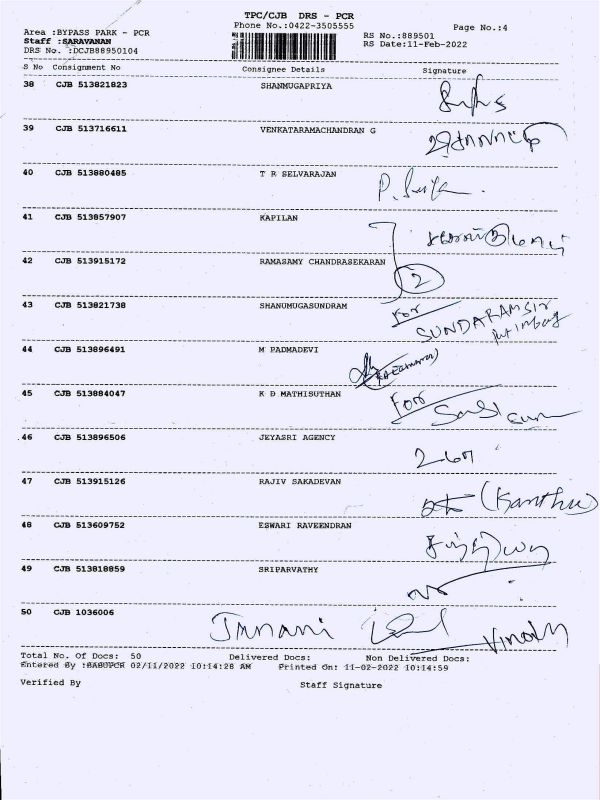 TPC/CJB DRS - PCR
Area :BYPASS PARK - PCR Phone No.:0422-3505555 Page No.:4
Staff :SARAVANAN RS No.:889501
DRS No. :DCJB88950104 RS Date:11-Feb-2022
S No Consignment No Consignee Details Signature
38 CJB 513821823 SHANMUGAPRIYA
39 CJB 513716611 VENKATARAMACHANDRAN G
40 CJB 513880485 T R SELVARAJAN
41 CJB 513857907 KAPILAN
42 CJB 513915172 RAMASAMY CHANDRASEKARAN 2
43 CJB 513821738 SHANUMUGASUNDRAM For
SUNDARAM SIR
44 CJB 513896491 M PADMADEVI
45 CJB 513884047 K D MATHISUTHAN For
46 CJB 513896506 JEYASRI AGENCY
47 CJB 513915126 RAJIV SAKADEVAN
48 CJB 513609752 ESWARI RAVEENDRAN
49 CJB 513818859 SRIPARVATHY
50 CJB 1036006 Janani Vinoth
Total No. Of Docs: 50 Delivered Docs: Non Delivered Docs:
Entered By :BABUPCR 02/11/2022 10:14:28 AM Printed On: 11-02-2022 10:14:59
Verified By Staff Signature